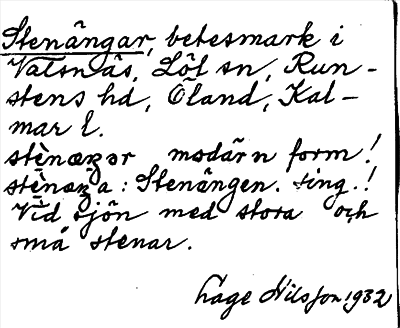 Stenängar, betesmark i
Valsnäs, Löt sn, Run-
stens hd, Öland, Kal-
mar l.
stènæŋar modärn form!
stènæŋa : Stenängen. sing.!
Vid sjön med stora och
små stenar.
Åage Nilsson 1932